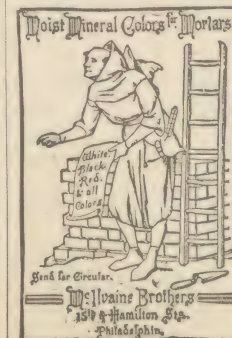 Moist Mineral Colors for Mortars
White,
Black,
Red,
& all
Colors.
Send for Circular.
McIlvaine Brothers
15th & Hamilton Sts.
Philadelphia.